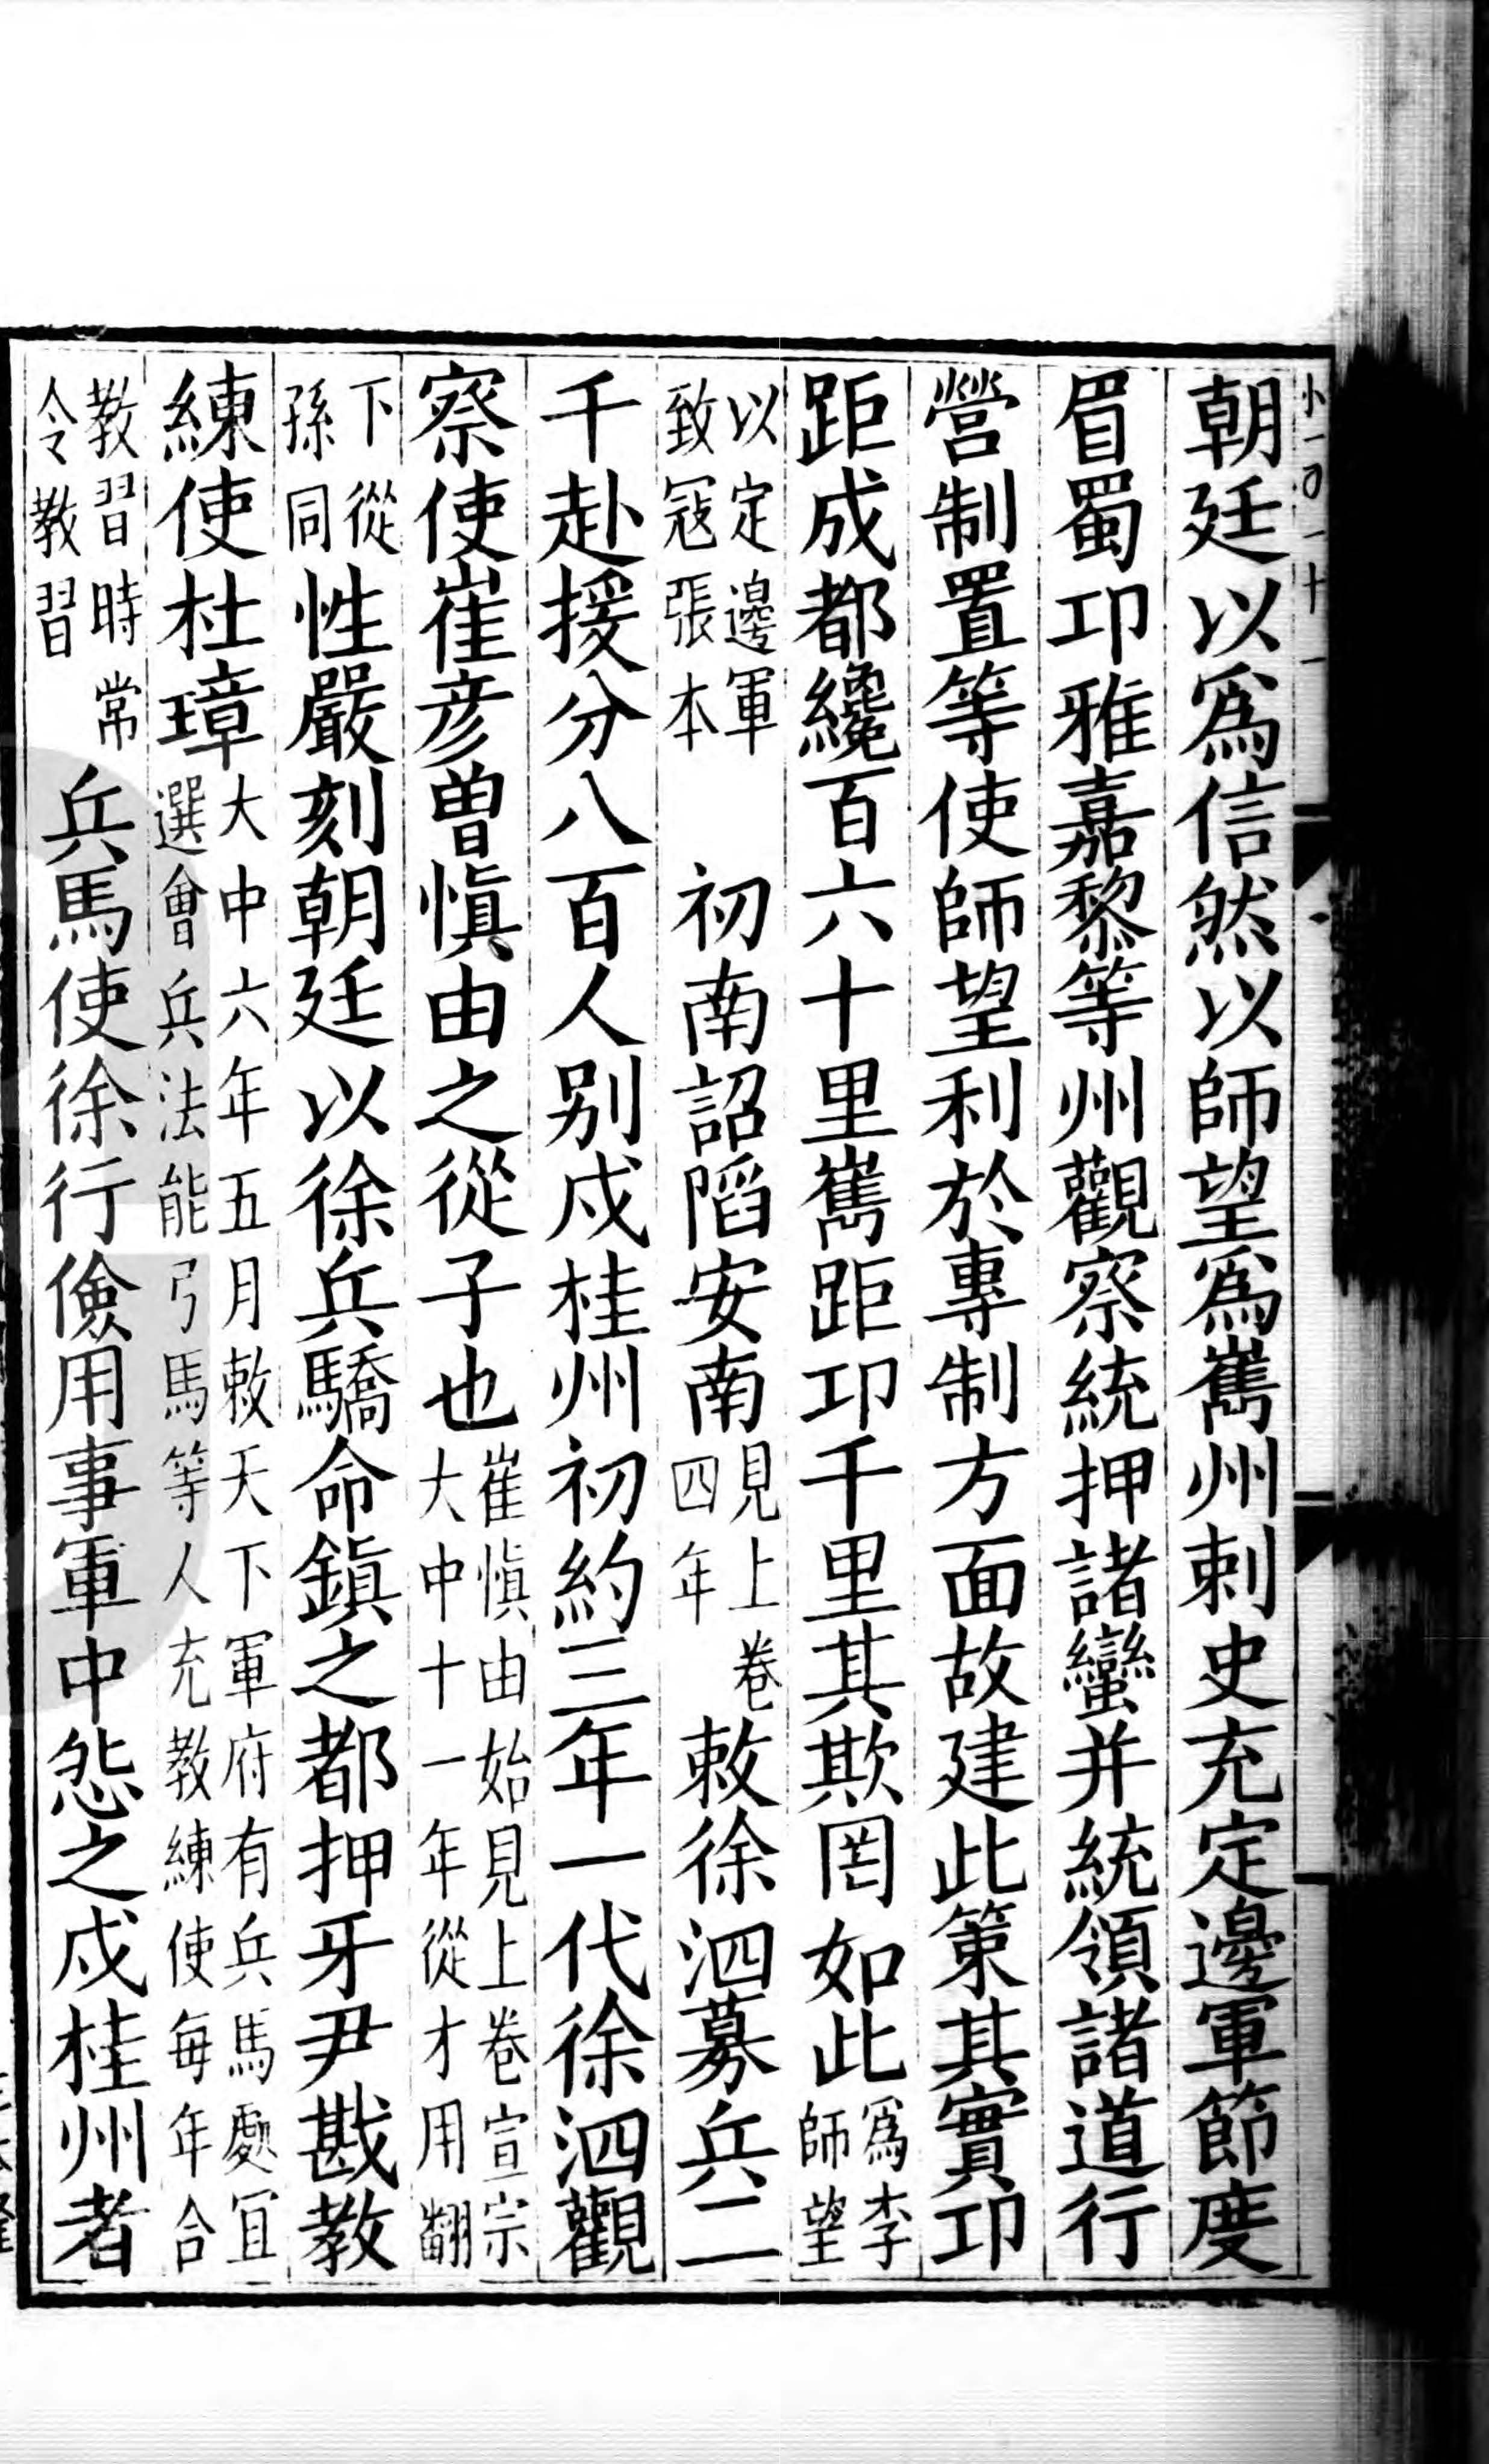 朝廷以爲信然以師望爲嶲州刺史充定邊軍節度
眉蜀卭雅嘉黎等州觀察統押諸蠻并統領諸道行
營制置等使師望利於專制方面故建此策其實卭
距成都纔百六十里嶲距卭千里其欺罔如此爲李師望
以定邊軍致冦張本 初南詔䧟安南見上卷四年敕徐泗募兵二
千赴援分八百人别戍桂州初約三年一代徐泗觀
察使崔彦曾愼由之從子也崔愼由始見上卷宣宗大中十一年從才用翻
下從孫同性嚴刻朝廷以徐兵驕命鎭之都押牙尹戡教
練使杜璋大中六年五月敕天下軍府有兵馬處宜選會兵法能弓馬等人充教練使每年合
教習時常令教習兵馬使徐行儉用事軍中怨之戍桂州者